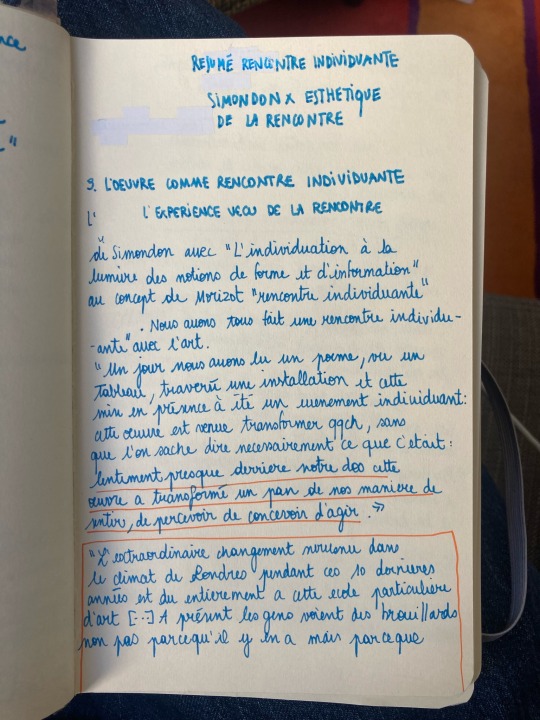 nce
"
RESUMÉ RENCONTRE INDIVIDUANTE
SIMONDON X ESTHETIQUE
DE LA RENCONTRE
9. L'OEUVRE COMME RENCONTRE INDIVIDUANTE
L' L'EXPERIENCE VECU DE LA RENCONTRE
di Simondon avec "L'individuation à la
lumière des notions de forme et d'information"
au concept de Morizot "rencontre individuante"
. Nous avons tous fait une rencontre individu-
-ante" avec l'art.
"Un jour nous avons lu un poème, vu un
tableau, traversé une installation et cette
mise en présence à été un evenement individuant:
cette oeuvre est venue transformer qqch, sans
que l'on sache dire necessairement ce que c'était:
lentiment presque derriere notre dos cette
œuvre a transformé un pan de nos maniere de
sentir, de percevoir de concevoir d'agir. »
"L'extraordinaire changement survenu dans
le climat de Londres pendant ces 10 dernieres
années est du entierement a cette ecole particulière
d'art [...] A présent les gens voient des brouillards
non pas parcequ'il y en a mais parceque